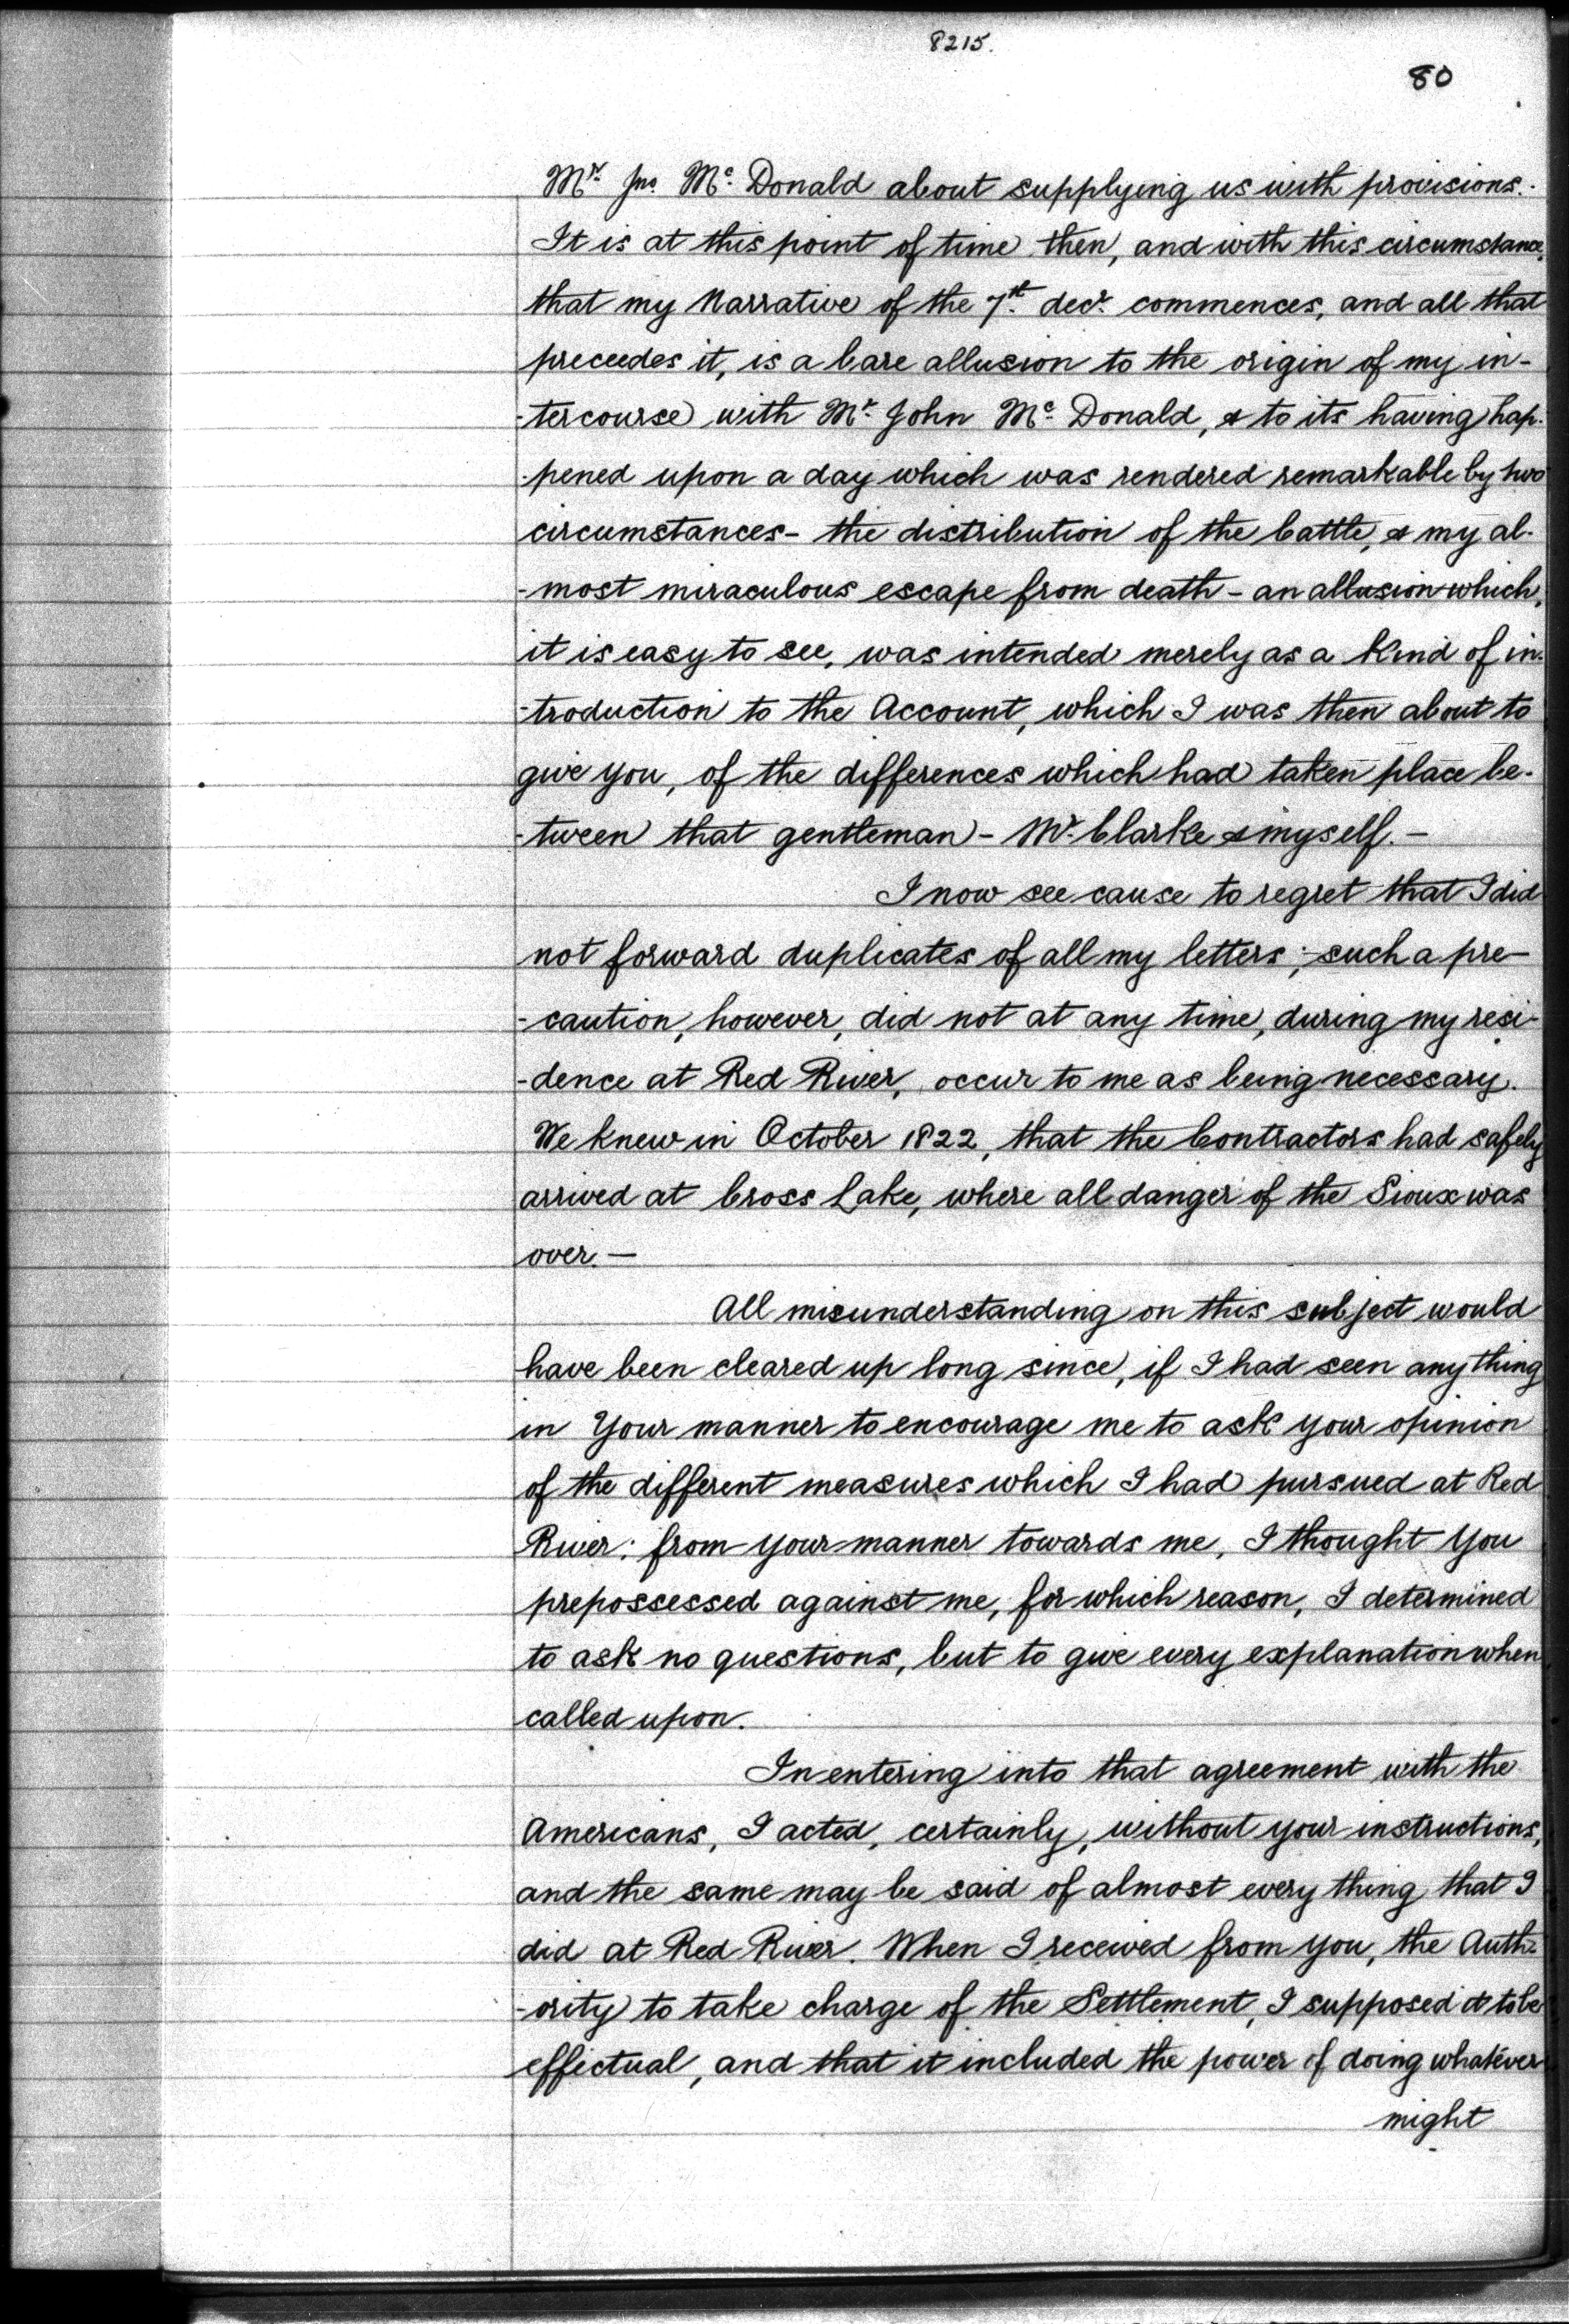 8215.
80
Mr. Jno. Mc. Donald about supplying us with provisions.
It is at this point of time then, and with this circumstance,
that my Narrative of the 7th. decr. commences, and all that
preceedes it, is a bare allusion to the origin of my in-
-tercourse with Mr. John Mc. Donald, & to its having hap-
-pened upon a day which was rendered remarkable by two
circumstances - the distribution of the Cattle, & my al-
-most miraculous escape from death - an allusion which,
it is easy to see, was intended merely as a kind of in-
-troduction to the Account, which I was then about to
give you, of the differences which had taken place be-
-tween that gentleman - Mr. Clarke & myself. -
I now see cause to regret that I did
not forward duplicates of all my letters; such a pre-
-caution, however, did not at any time, during my resi-
-dence at Red River, occur to me as being necessary.
We knew in October 1822, that the Contractors had safely
arrived at Cross Lake, where all danger of the Sioux was
over. -
All misunderstanding on this subject would
have been cleared up long since, if I had seen any thing
in Your manner to encourage me to ask your opinion
of the different measures which I had pursued at Red
River: from your manner towards me, I thought You
prepossessed against me, for which reason, I determined
to ask no questions, but to give every explanation when
called upon.
In entering into that agreement with the
Americans, I acted, certainly, without your instructions,
and the same may be said of almost every thing that I
did at Red River. When I received from you, the Auth-
-ority to take charge of the Settlement, I supposed it to be
effectual, and that it included the power of doing whatever
might